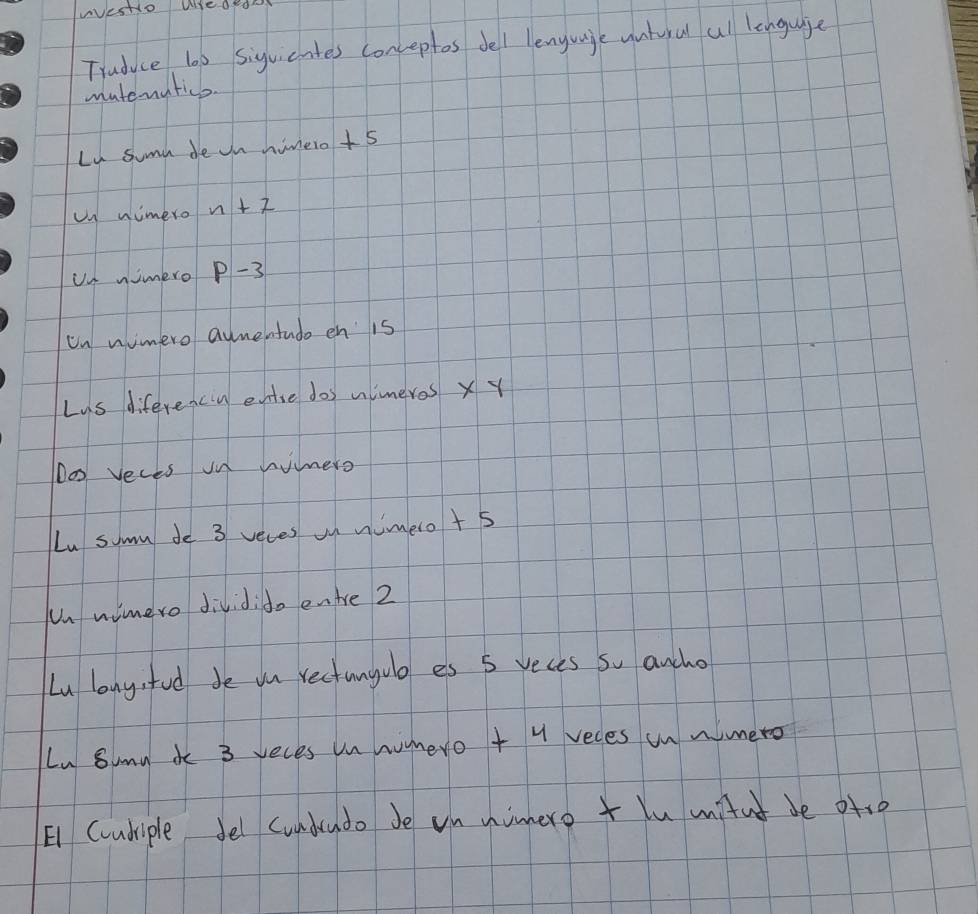 Traduce los siguientes conceptos del lenguaje natural al lenguaje
matematico.
La suma de un número + 5
Un número n + 7
Un número P - 3
Un número aumentado en 15
Las diferencia entre dos números X Y
Dos veces un número
La suma de 3 veces un número + 5
Un número dividido entre 2
La longitud de un rectangulo es 5 veces su ancho
La suma de 3 veces un numero + 4 veces un número
El Cuadriple del cuadrado de un número + la mitad de otro